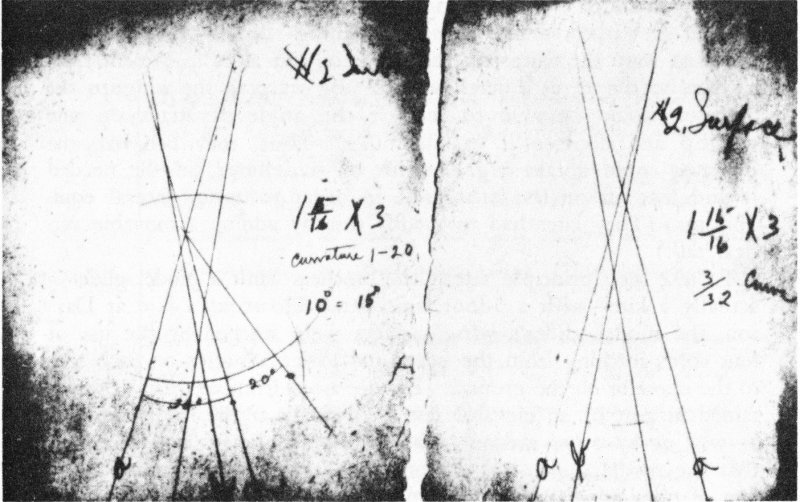 #2 Surf
1 15/16 X 3
curvature 1-20
10° = 15°
20°
a
#2, Surface
1 15/16 X 3
3/32 Curve
a
a